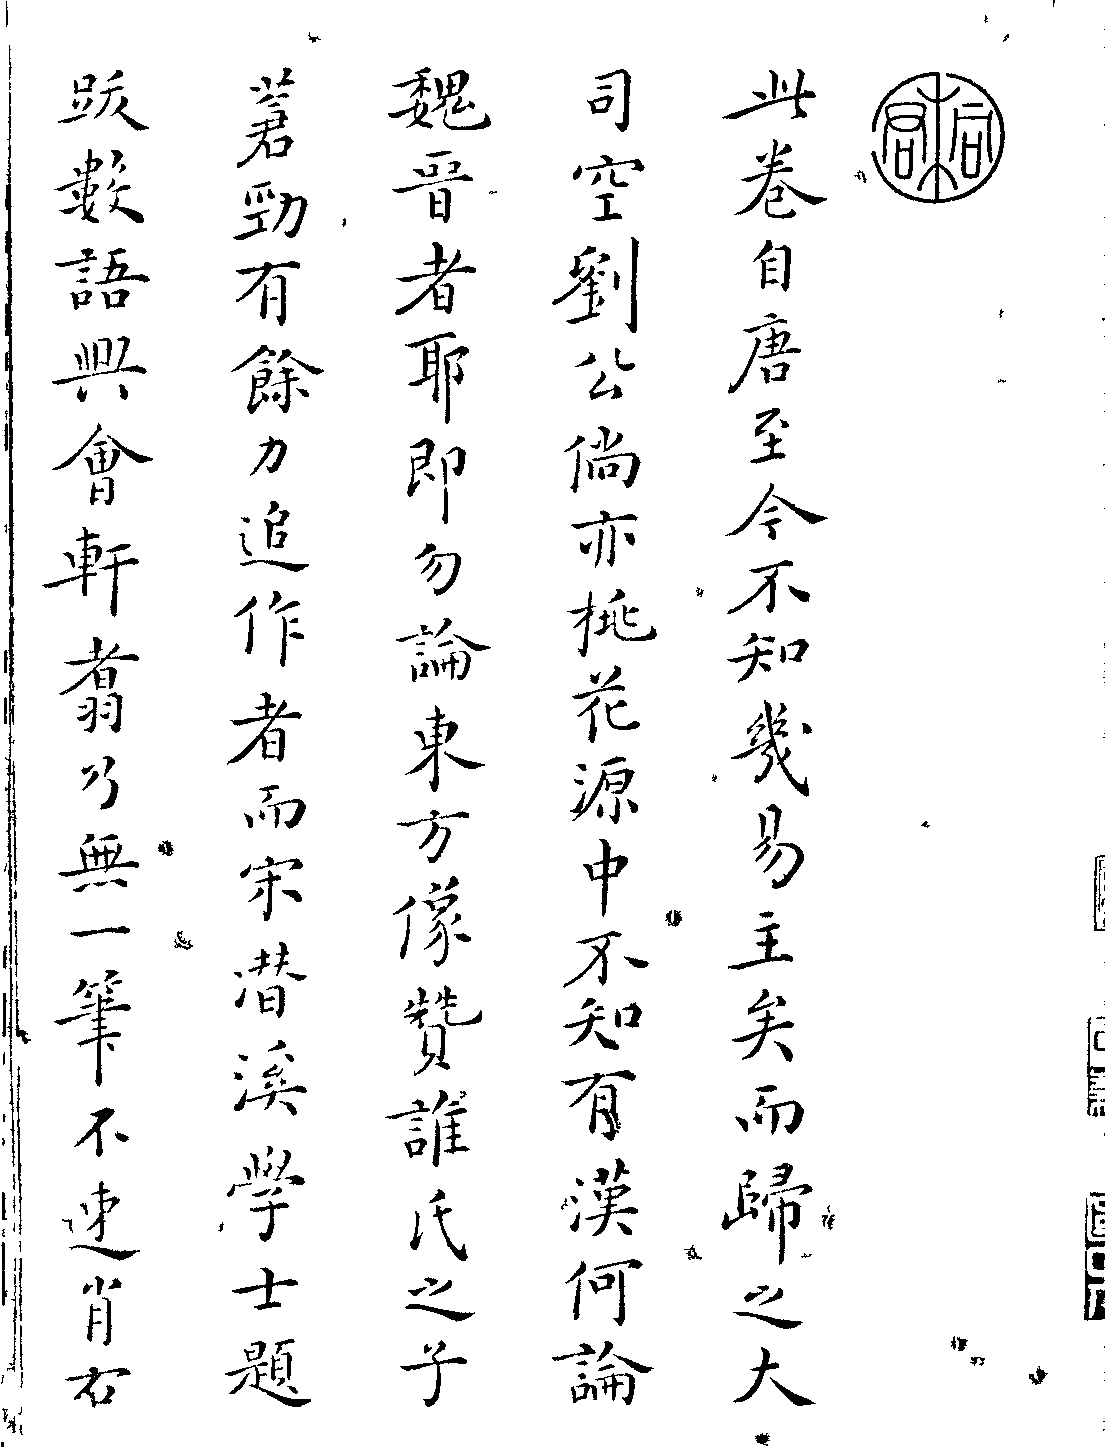 此卷自唐至今不知幾易主矣而歸之大
司空劉公倘亦桃花源中不知有漢何論
魏晉者耶即勿論東方像贊誰氏之子
著勁有餘力追作者而宋潛溪學士題
跋數語興會軒翥乃無一筆不逮肖右